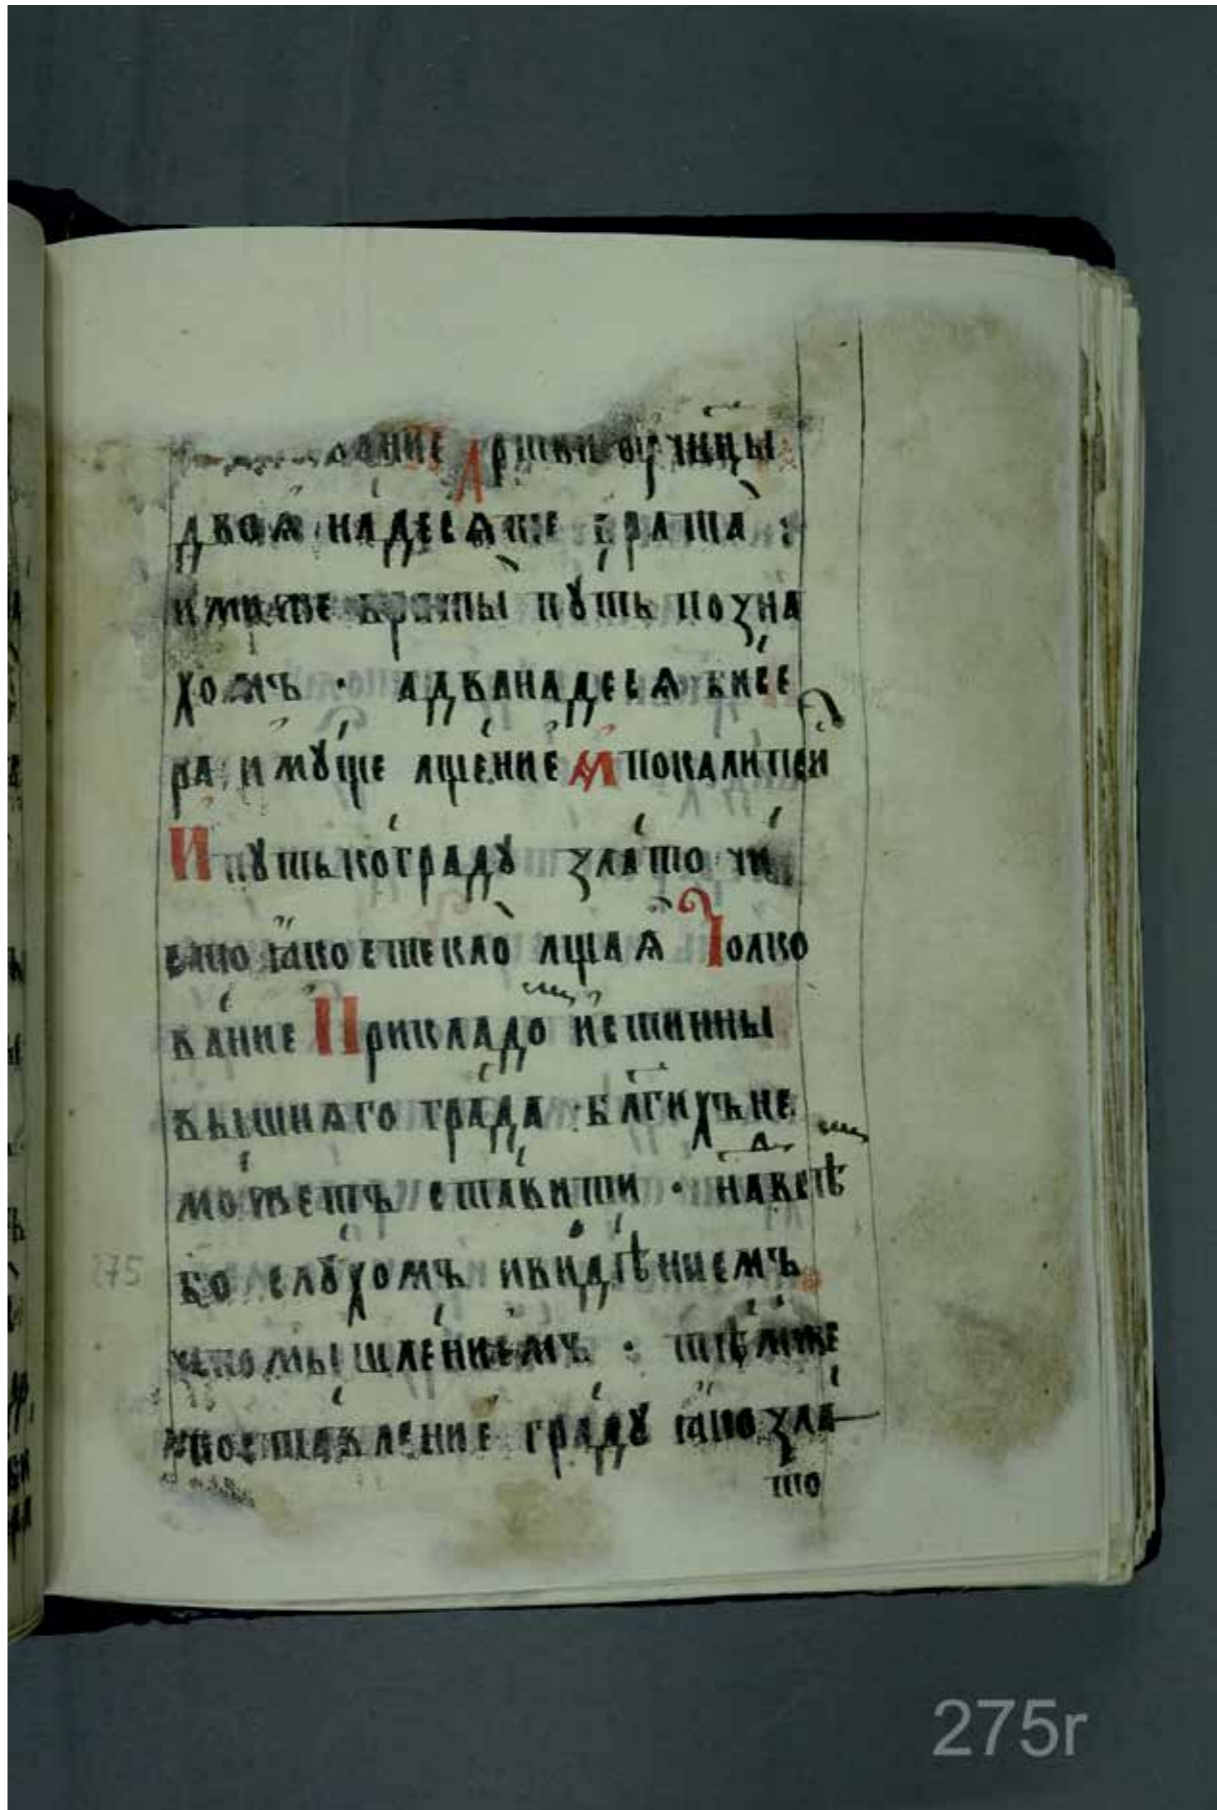 вание
двоѧ надесѧте врата :
ими же враты пꙋть позна
хомъ · а дванадесѧ бисе
ра имꙋще лщение Апокалипсїи
И пꙋть ко градꙋ злато чи
сто ꙗко стекло лщаѧ Толко
вание Прикладо истинны
вышнѧго града благихъ не
можетъ ставити · навѣ
бо слꙋхомъ и видѣниемъ
и помышлениемъ : тѣм же
поставление градꙋ ꙗко зла
то
275
275r